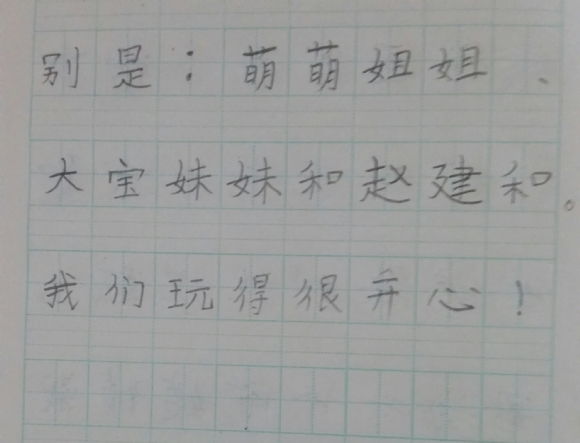 别是：萌萌姐姐、
大宝妹妹和赵建和。
我们玩得很开心！